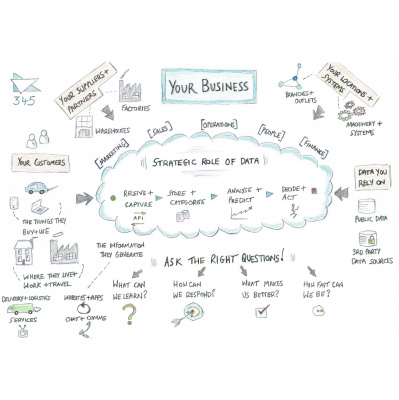 345
YOUR SUPPLIERS +
PARTNERS
FACTORIES
WAREHOUSES
YOUR BUSINESS
BRANCHES +
OUTLETS
YOUR LOCATIONS +
SYSTEMS
MACHINERY +
SYSTEMS
[MARKETING]
[SALES]
[OPERATIONS]
[PEOPLE]
[FINANCE]
STRATEGIC ROLE OF DATA
RECEIVE +
CAPTURE
API
STORE +
CATEGORISE
ANALYSE +
PREDICT
DECIDE +
ACT
YOUR CUSTOMERS
THE THINGS THEY
BUY + USE
WHERE THEY LIVE +
WORK + TRAVEL
THE INFORMATION
THEY GENERATE
DELIVERY + LOGISTICS
SERVICES
WEBSITES + APPS
CHAT + COMMS
DATA YOU
RELY ON
PUBLIC DATA
3RD PARTY
DATA SOURCES
ASK THE RIGHT QUESTIONS!
WHAT CAN
WE LEARN?
?
HOW CAN
WE RESPOND?
WHAT MAKES
US BETTER?
HOW FAST CAN
WE BE?